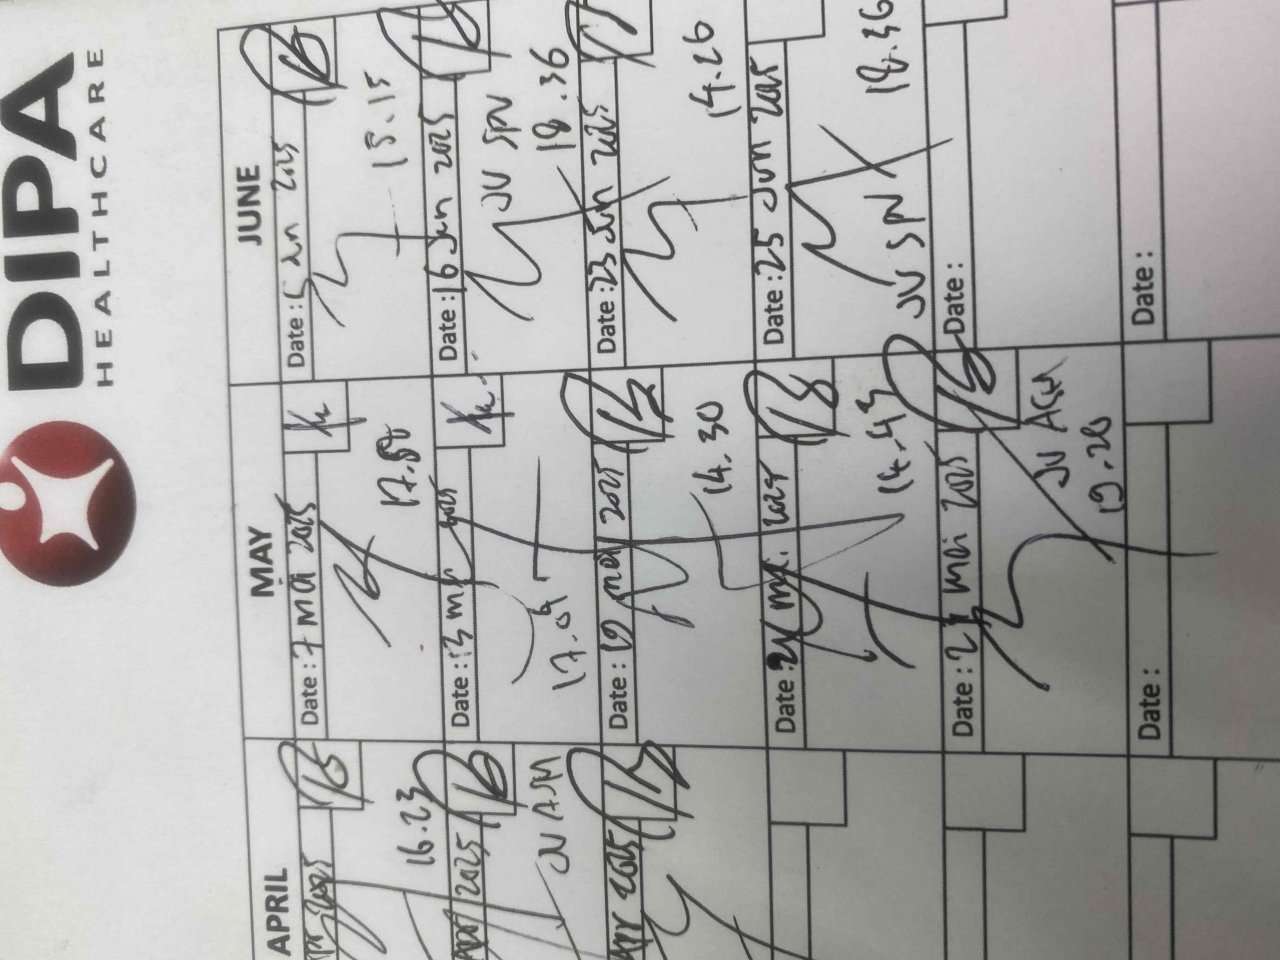 DIPA
HEALTHCARE
APRIL
2025
16.23
2025
JV ASM
Apr 2025
MAY
Date : 7 Mei 2025
17.
Date : 13 2025
17.09
Date : 19 mei 2025
14.30
Date : 2025
14.43
Date : 2 Mei 2025
JV ASM
19.20
Date :
JUNE
Date : 5 Jun 2025
15.15
Date : 16 Jun 2025
JV SPV
18.36
Date : 23 Jun 2025
14.26
Date : 25 Jun 2025
JV SPV
18.36
Date :
Date :